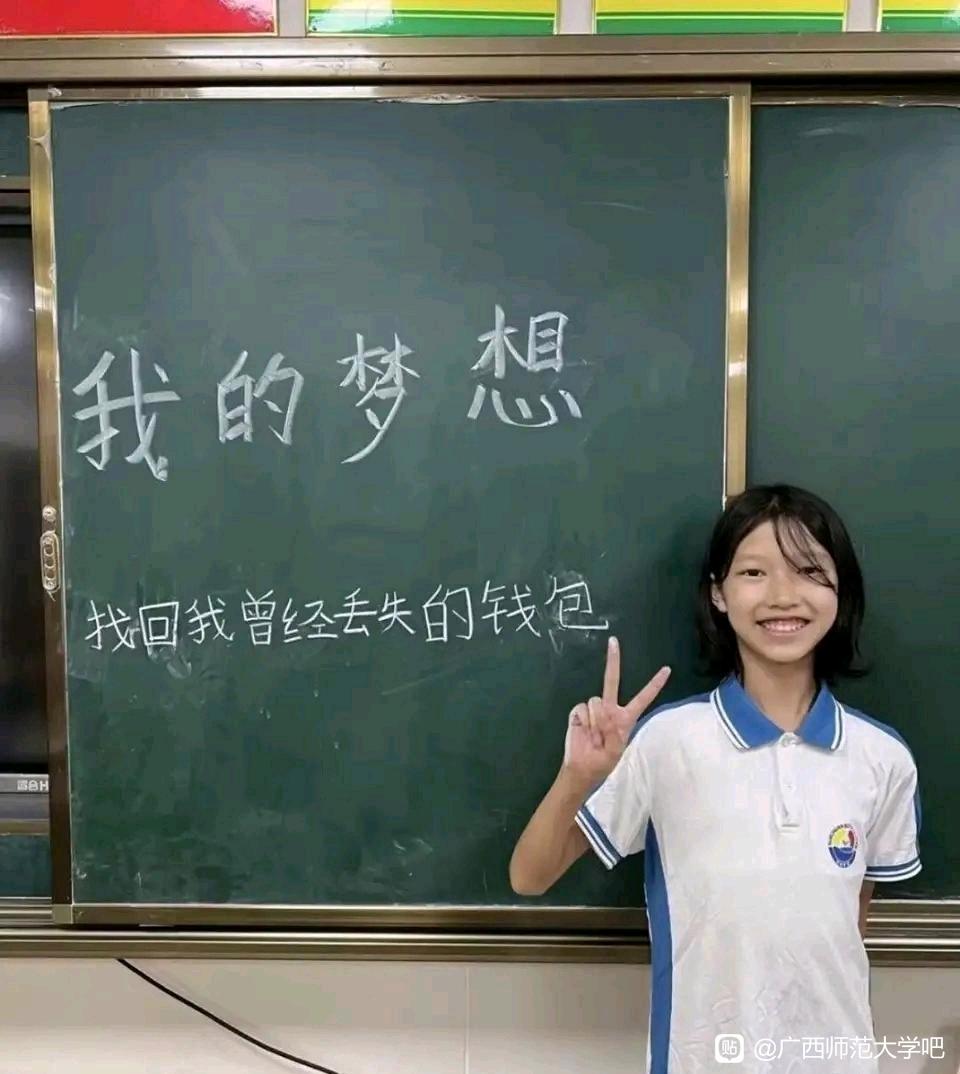 我的梦想
找回我曾经丢失的钱包
贴 @广西师范大学吧